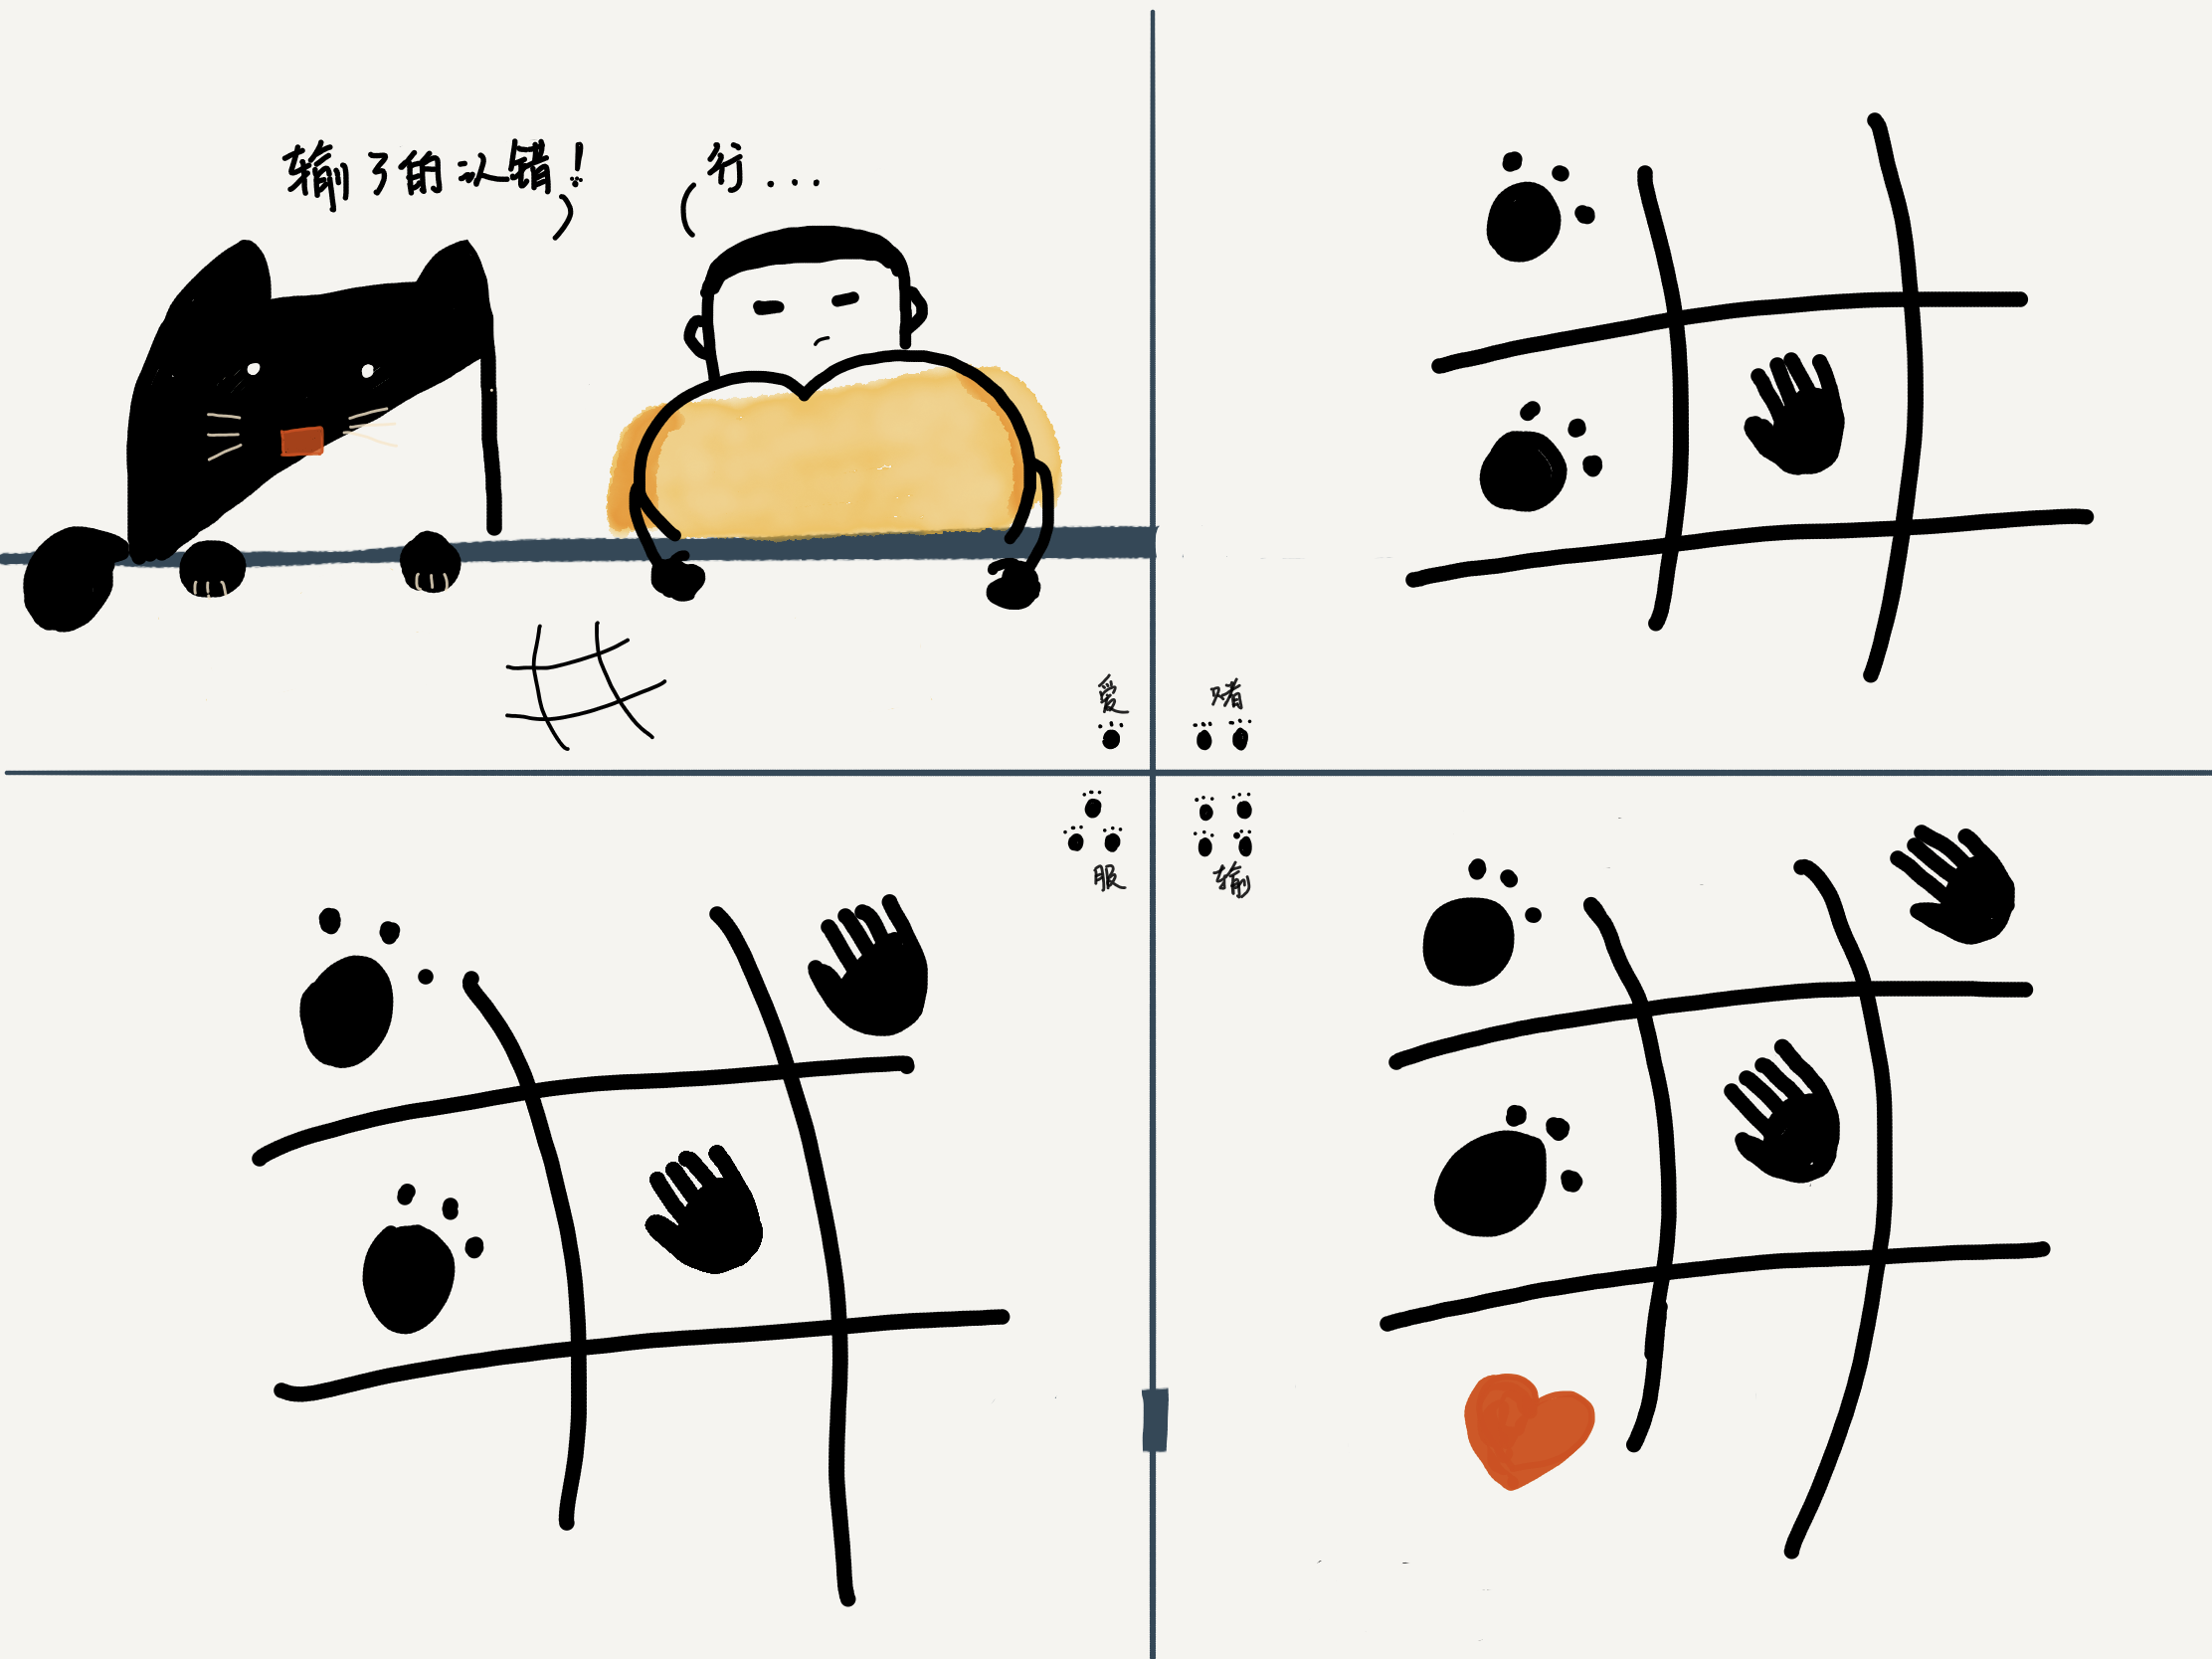 输了的认错！
行...
爱
赌
服
输